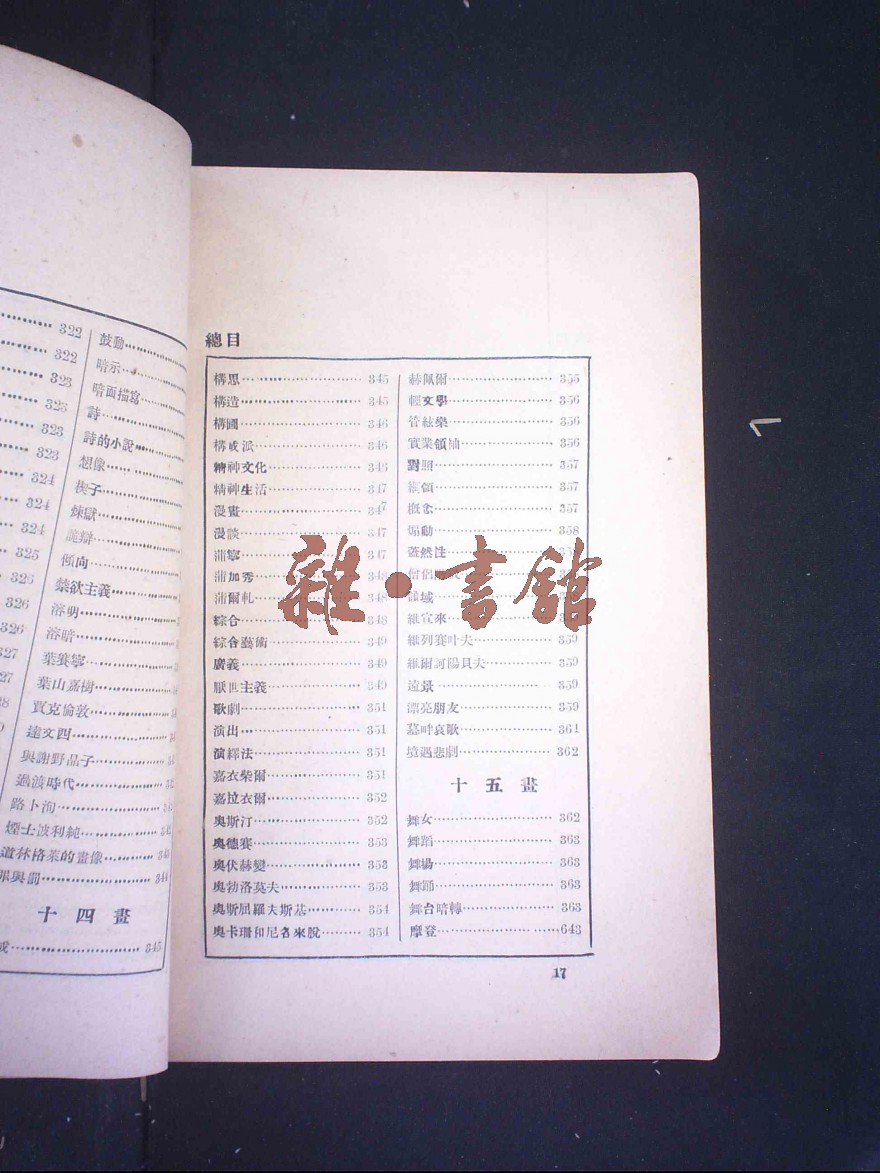 322
322
323
323
323
323
324
324
324
325
326
326
326
327
327
鼓動
暗示
暗面描寫
詩
詩的小說
想像
楔子
煉獄
詭辯
傾向
禁欲主義
溶明
溶暗
葉賽寧
葉山嘉樹
賈克倫敦
達文西
與謝野晶子
過渡時代
路卜洵
煙士波利純
道林格萊的畫像
罪與罰 344
十四畫
345
總目
構思 345
構造 345
構圖 346
構成派 346
精神文化 346
精神生活 347
漫畫 347
漫談 347
蒲寧 347
蒲加秀 348
蒲爾軋 348
綜合 348
綜合藝術 349
廣義 349
厭世主義 349
歌劇 351
演出 351
演繹法 351
嘉衣柴爾 351
嘉拉衣爾 352
奧斯汀 352
奧德賽 353
奧伏赫變 353
奧勃洛莫夫 353
奧斯屈羅夫斯基 354
奧卡珊和尼各來脫 354
赫佩爾 355
輕文學 356
管絃樂 356
實業領袖 356
對照 357
綱領 357
概念 357
煽動 358
蓋然性
僧侶
維宣來
維列賽叶夫 359
維爾訶陽貝夫 359
遠景 359
漂亮朋友 359
墓畔哀歌 361
境遇悲劇 362
十五畫
舞女 362
舞蹈 363
舞揚 363
舞踊 363
舞台暗轉 363
摩登 643
17
雜·書館